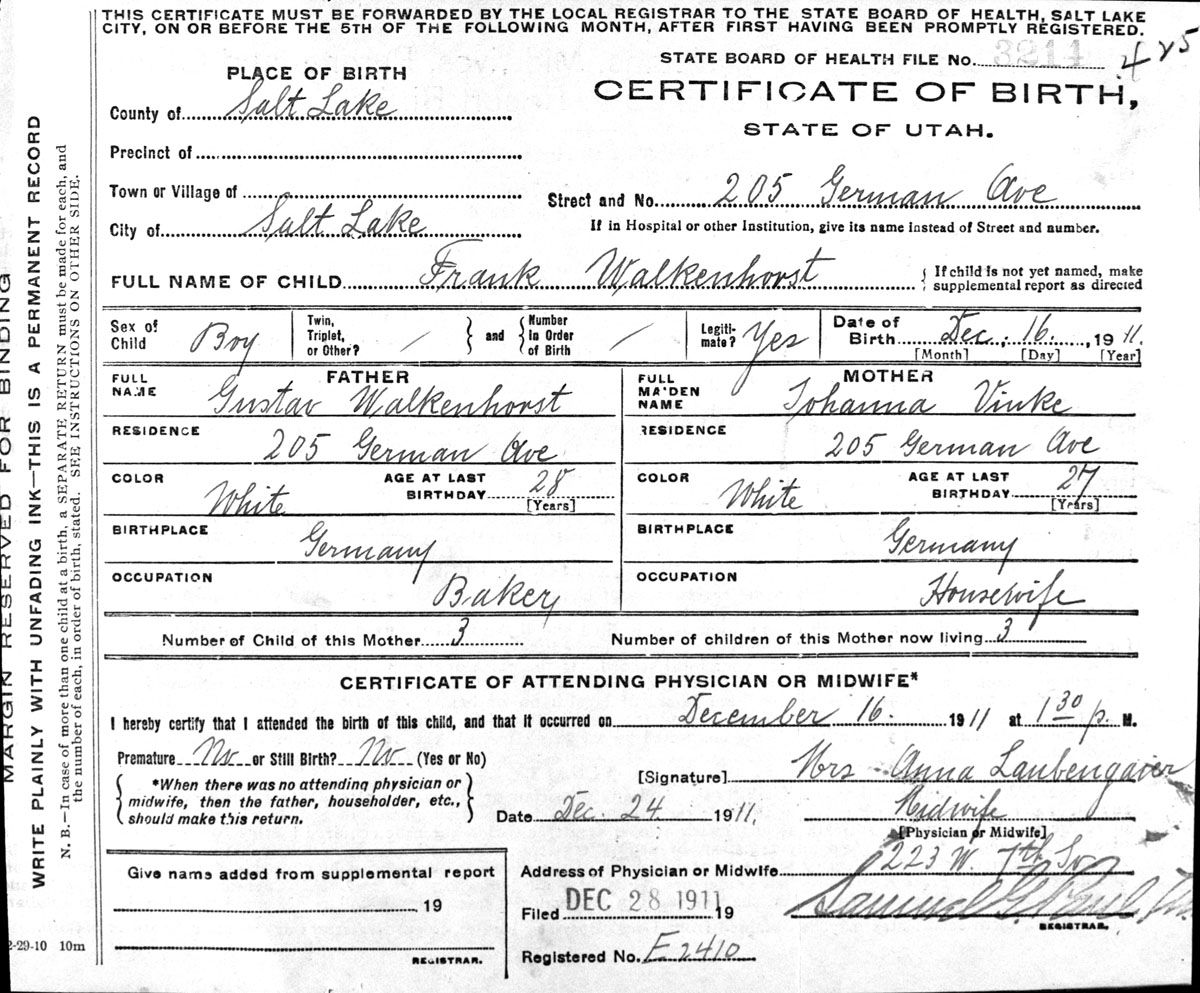 THIS CERTIFICATE MUST BE FORWARDED BY THE LOCAL REGISTRAR TO THE STATE BOARD OF HEALTH, SALT LAKE
CITY, ON OR BEFORE THE 5TH OF THE FOLLOWING MONTH, AFTER FIRST HAVING BEEN PROMPTLY REGISTERED.
MARGIN RESERVED FOR BINDING
WRITE PLAINLY WITH UNFADING INK—THIS IS A PERMANENT RECORD
N. B.—In case of more than one child at a birth, a SEPARATE RETURN must be made for each, and
the number of each, in order of birth, stated. SEE INSTRUCTIONS ON OTHER SIDE.
STATE BOARD OF HEALTH FILE No. 3211 425
PLACE OF BIRTH
CERTIFICATE OF BIRTH,
STATE OF UTAH.
County of Salt Lake
Precinct of
Town or Village of
Street and No. 205 German Ave
City of Salt Lake
If in Hospital or other Institution, give its name instead of Street and number.
FULL NAME OF CHILD Frank Walkenhorst { If child is not yet named, make
supplemental report as directed
Sex of Child Boy Twin, Triplet, or Other? / } and { Number in Order of Birth / Legiti-mate? Yes Date of Birth Dec. 16, 1911.
[Month] [Day] [Year]
FATHER
FULL NAME Gustav Walkenhorst
RESIDENCE 205 German Ave
COLOR White AGE AT LAST BIRTHDAY 28 [Years]
BIRTHPLACE Germany
OCCUPATION Baker
MOTHER
FULL MAIDEN NAME Johanna Vinke
RESIDENCE 205 German Ave
COLOR White AGE AT LAST BIRTHDAY 27 [Years]
BIRTHPLACE Germany
OCCUPATION Housewife
Number of Child of this Mother 3 Number of children of this Mother now living 3
CERTIFICATE OF ATTENDING PHYSICIAN OR MIDWIFE*
I hereby certify that I attended the birth of this child, and that it occurred on December 16. 1911 at 1 30 p. M.
Premature No or Still Birth? No (Yes or No)
{ *When there was no attending physician or
midwife, then the father, householder, etc.,
should make this return. }
[Signature] Mrs Anna Laubengaier
Date Dec. 24 1911. Midwife
[Physician or Midwife]
Address of Physician or Midwife 223 W. 7th So
Filed DEC 28 1911 19 Samuel G. Paul
REGISTRAR.
Registered No. E2410
Give name added from supplemental report
, 19
REGISTRAR.
2-29-10 10m